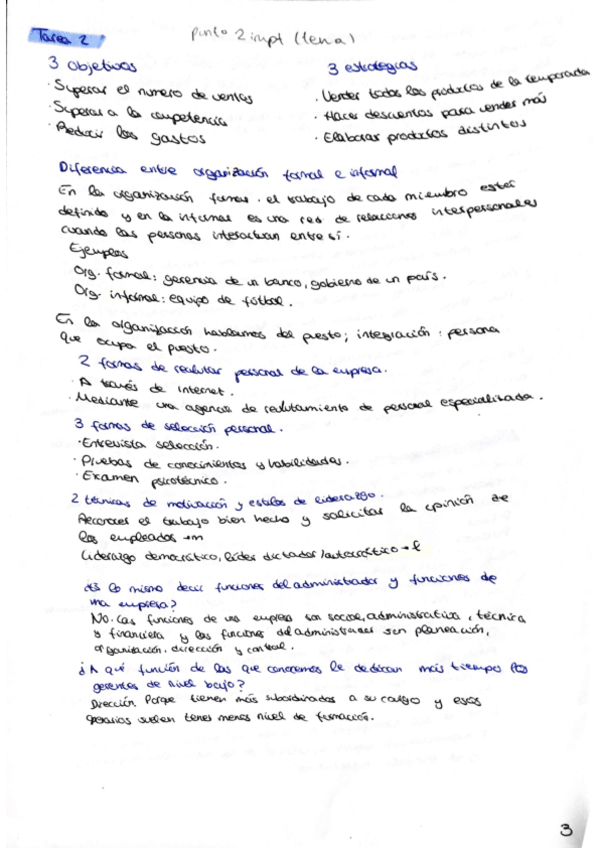 Tarea 2
punto 2 impt (tema)
3 objetivos
· Superar el numero de ventas
· Superar a la competencia
· Reducir los gastos
3 estrategias
· Vender todos los productos de la temporada
· Hacer descuentos para vender más
· Elaborar productos distintos
Diferencia entre organización formal e informal
En la organización formal el trabajo de cada miembro está
definido y en la informal es una red de relaciones interpersonales
cuando las personas interactuan entre sí.
Ejemplos
Org. formal: gerencia de un banco, gobierno de un país.
Org. informal: equipo de fútbol.
En la organización hablamos del puesto; integración: persona
que ocupa el puesto.
2 formas de reclutar personal de la empresa.
· A través de Internet.
· Mediante una agencia de reclutamiento de personal especializada.
3 formas de selección personal.
· Entrevista selección.
· Pruebas de conocimientos y habilidades.
· Examen psicotécnico.
2 técnicas de motivación y estilos de liderazgo.
Reconocer el trabajo bien hecho y solicitar la opinión de
los empleados → m
Liderazgo democrático, líder dictador/autocrático → l
¿Es lo mismo decir funciones del administrador y funciones de
una empresa?
No. Las funciones de una empresa son social, administrativa, técnica
y financiera y las funciones del administrador son planeación,
organización, dirección y control.
¿A qué función de las que conocemos le dedican más tiempo los
gerentes de nivel bajo?
Dirección. Porque tienen más subordinados a su cargo y esos
operarios suelen tener menos nivel de formación.
3